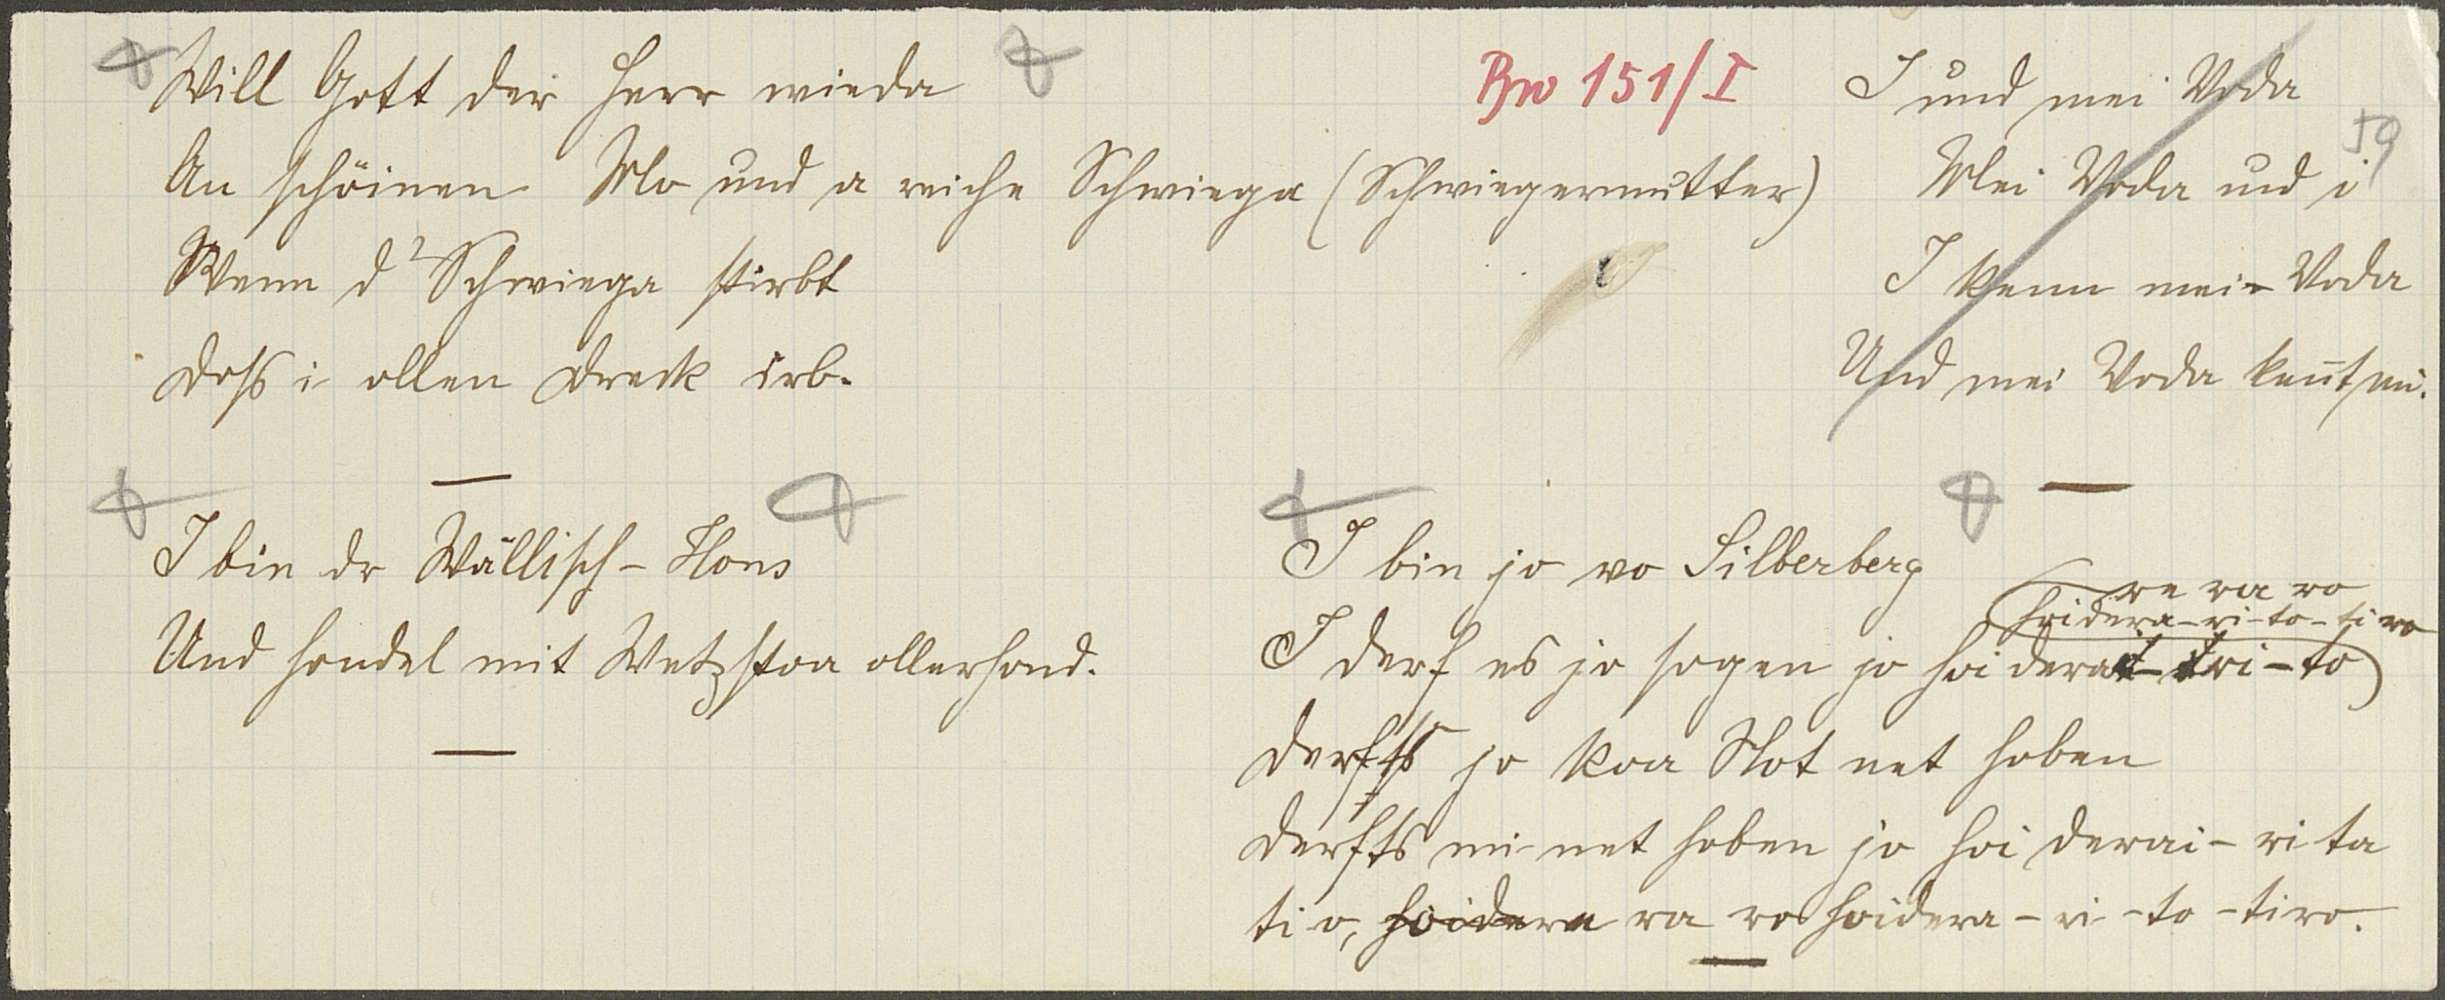 Will Gott der Herr wieda
An schöinen Mo und a reiche Schwiega (Schwiegermutter)
Wenn d' Schwiega stirbt
Doß i ollen Dreck irb.
I bin dr Wällisch-Hons
Und hondel mit Wetzstoa ollerhond.
Bw 151/I
59
I und mei Voda
Mei Voda und i
I kenn mein Voda
Und mei Voda kennt mi.
I bin jo vo Silberberg
re ra ro
hoidera-ri-to-tiro
I derf es jo sogen jo hoi derai-ri-to
Derfts jo koa Not net hoben
Derfts mi net hoben jo hoi derai-ri ta
tio, hoidera ra ro hoidera-ri-to-tiro.